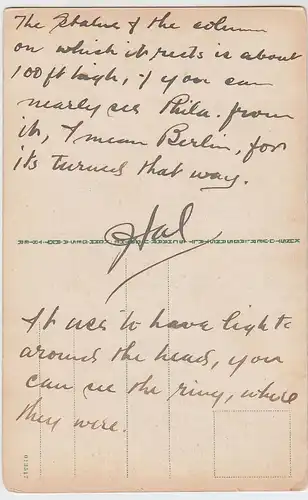 The statue of the column
on which it rests is about
100 ft high, & you can
nearly see Phila. from
it, I mean Berlin, for
its turned that way.
Hal
It use to have lights
around the head, you
can see the ring, where
they were.